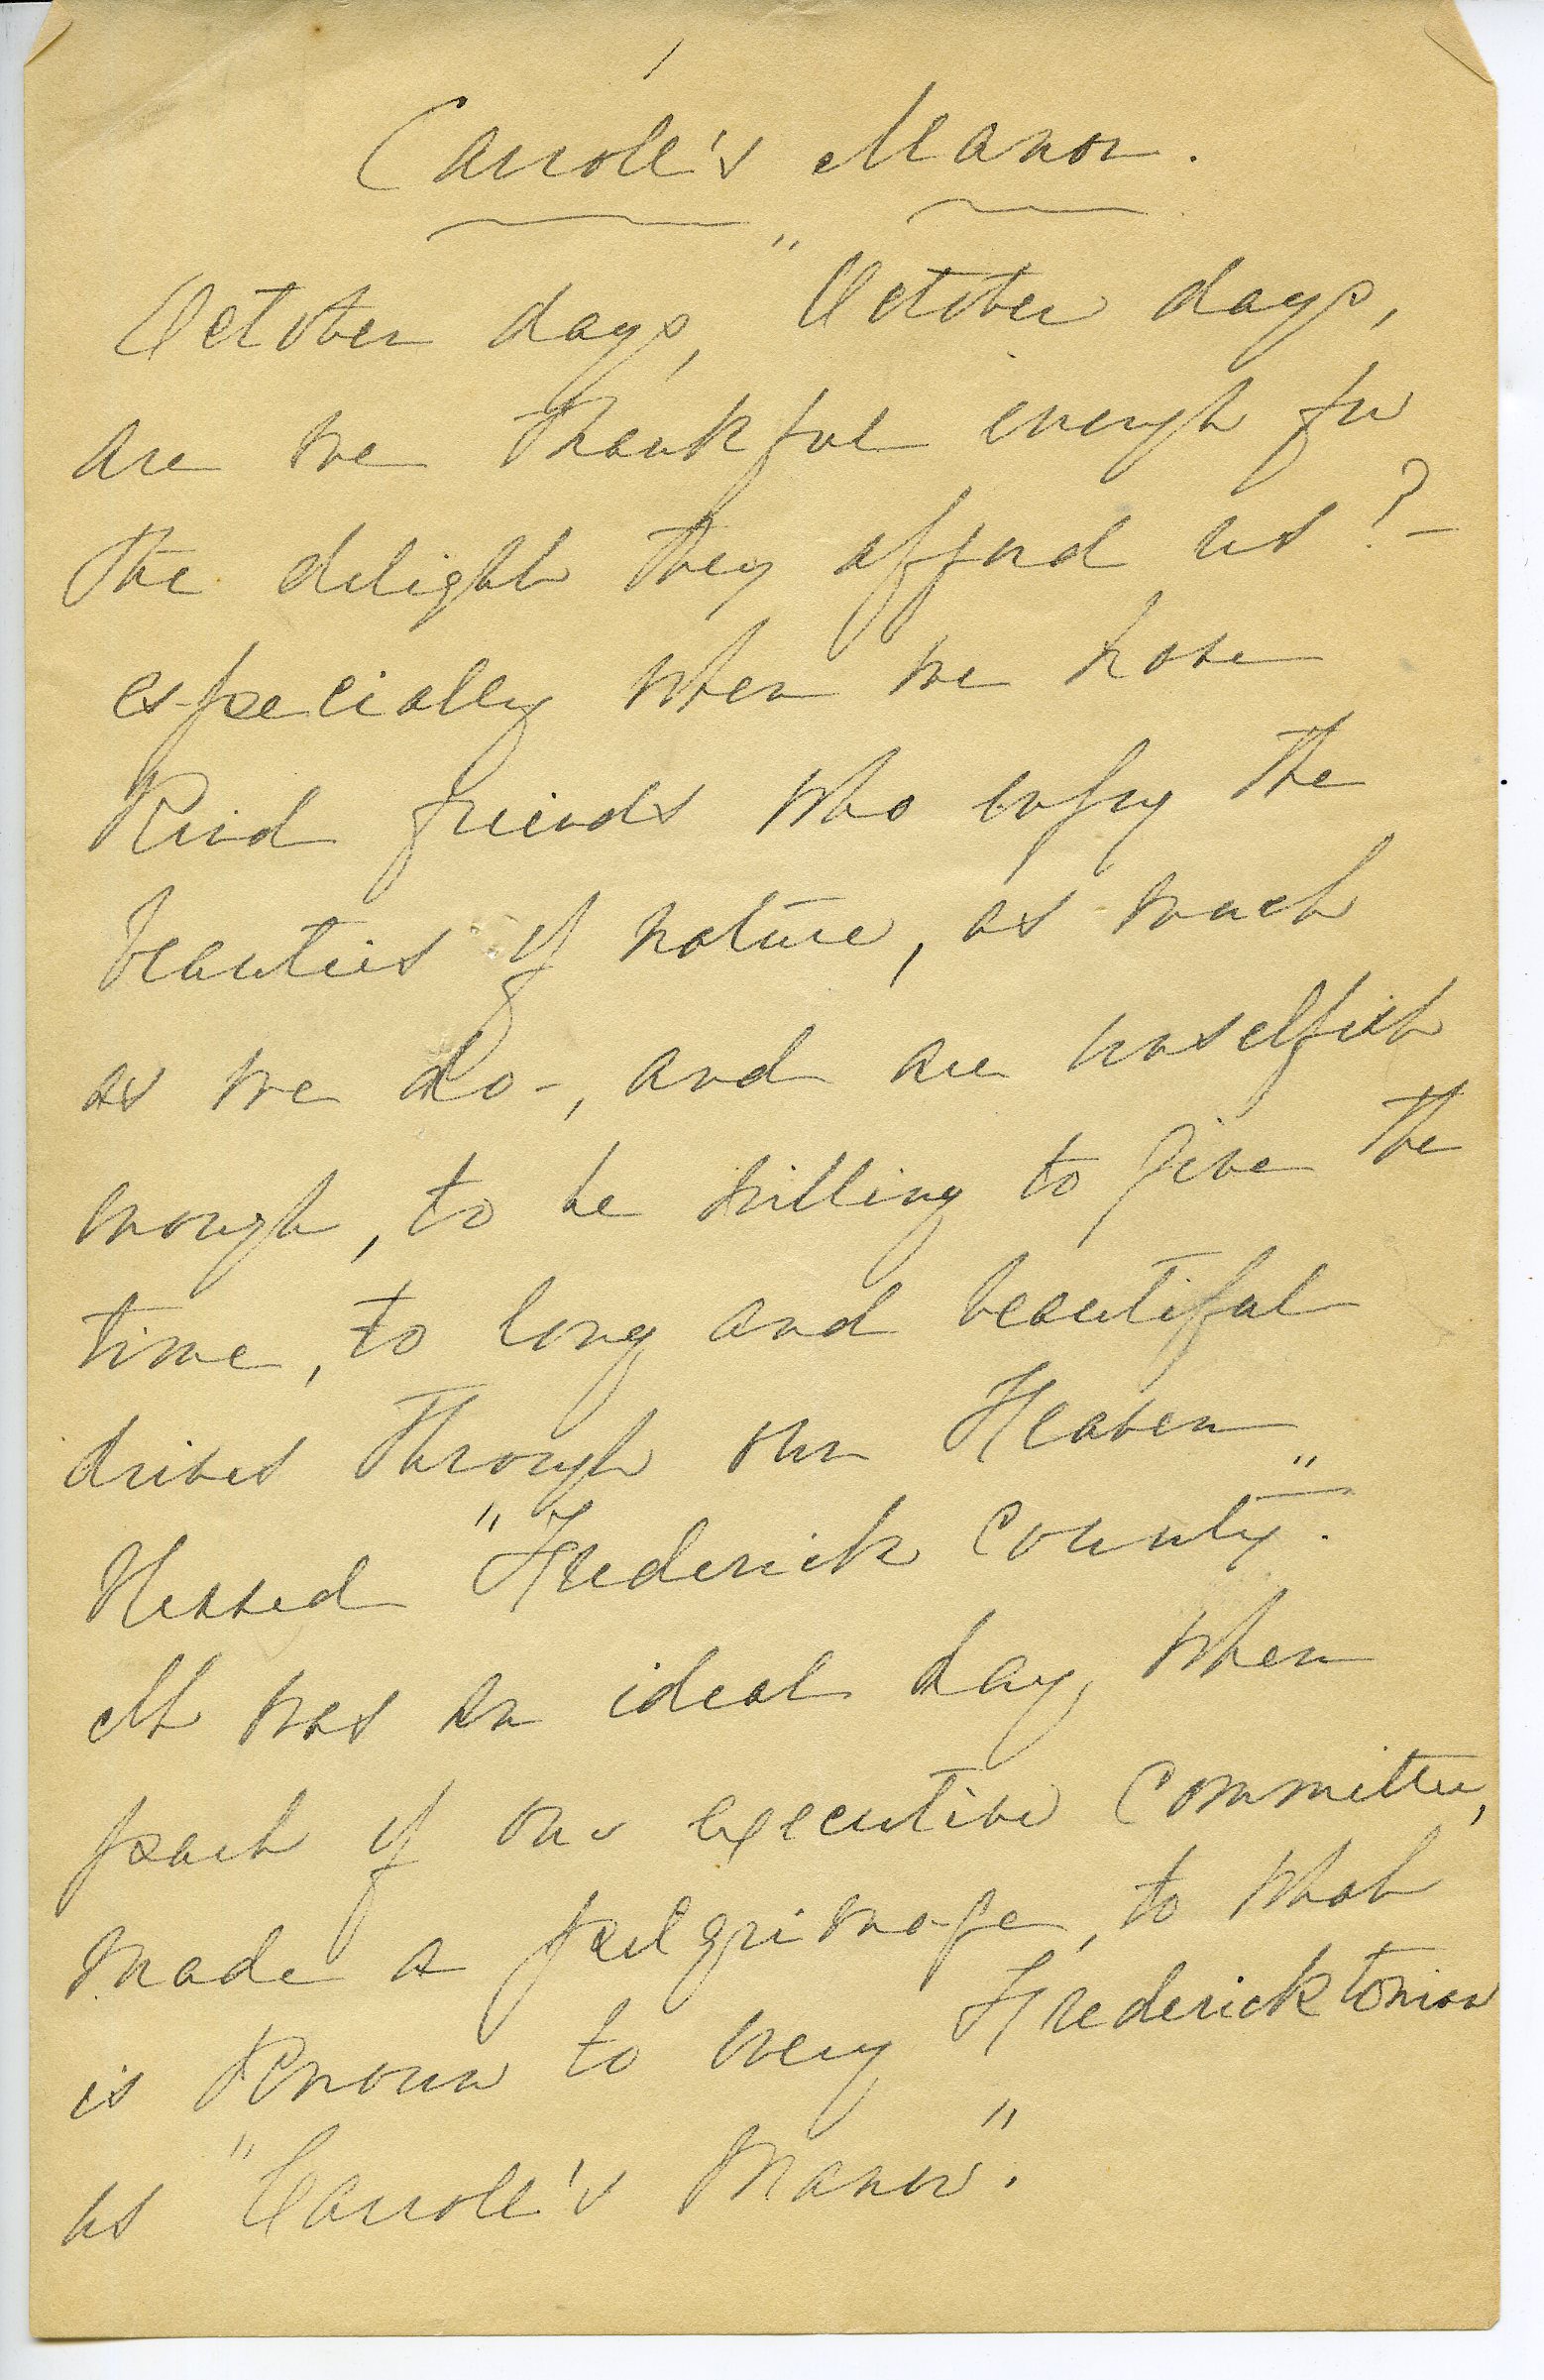 Carroll's Manor.
October days, "October days,
are we thankful enough for
the delight they afford us? -
especially when we have
Kind friends who enjoy the
beauties of nature, as much
as we do -, and are unselfish
enough, to be willing to give the
time, to long and beautiful
drives through our Heaven
blessed "Frederick County".
It was an ideal day, when
part of our executive Committee,
made a pilgrimage, to what
is Known to every Fredericktonian
as "Carroll's Manor".